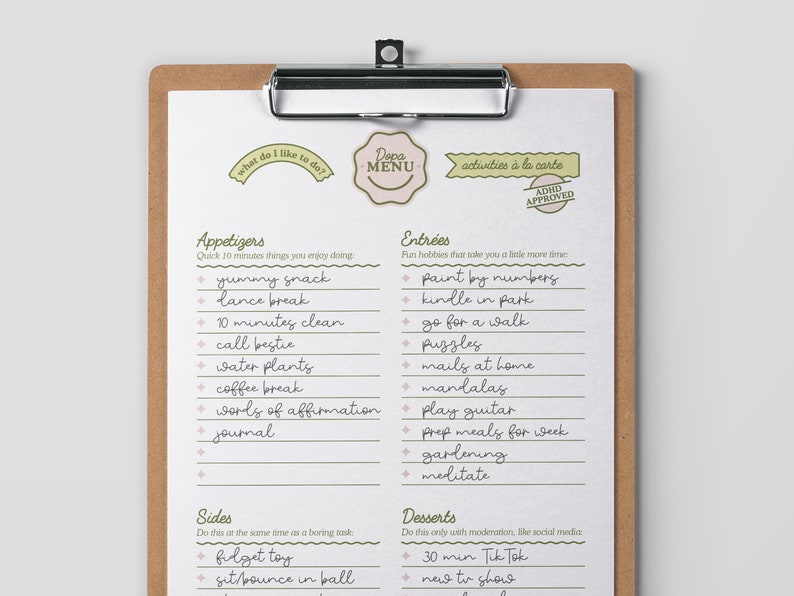 what do I like to do?
Dopa
MENU
activities à la carte
ADHD
APPROVED
Appetizers
Quick 10 minutes things you enjoy doing:
yummy snack
dance break
10 minutes clean
call bestie
water plants
coffee break
words of affirmation
journal
Entrées
Fun hobbies that take you a little more time:
paint by numbers
kindle in park
go for a walk
puzzles
mails at home
mandalas
play guitar
prep meals for week
gardening
meditate
Sides
Do this at the same time as a boring task:
fidget toy
sit/bounce in ball
Desserts
Do this only with moderation, like social media:
30 min TikTok
new tv show